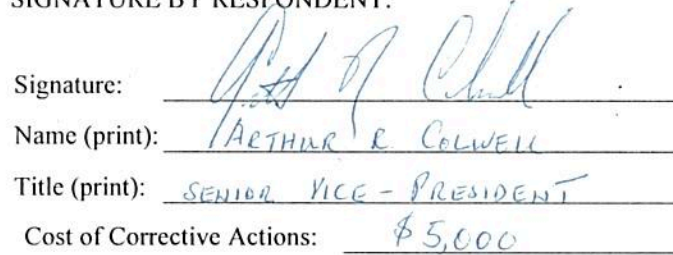 SIGNATURE BY RESPONDENT:
Signature:
Name (print): ARTHUR R COLWELL
Title (print): SENIOR VICE-PRESIDENT
Cost of Corrective Actions: $5,000